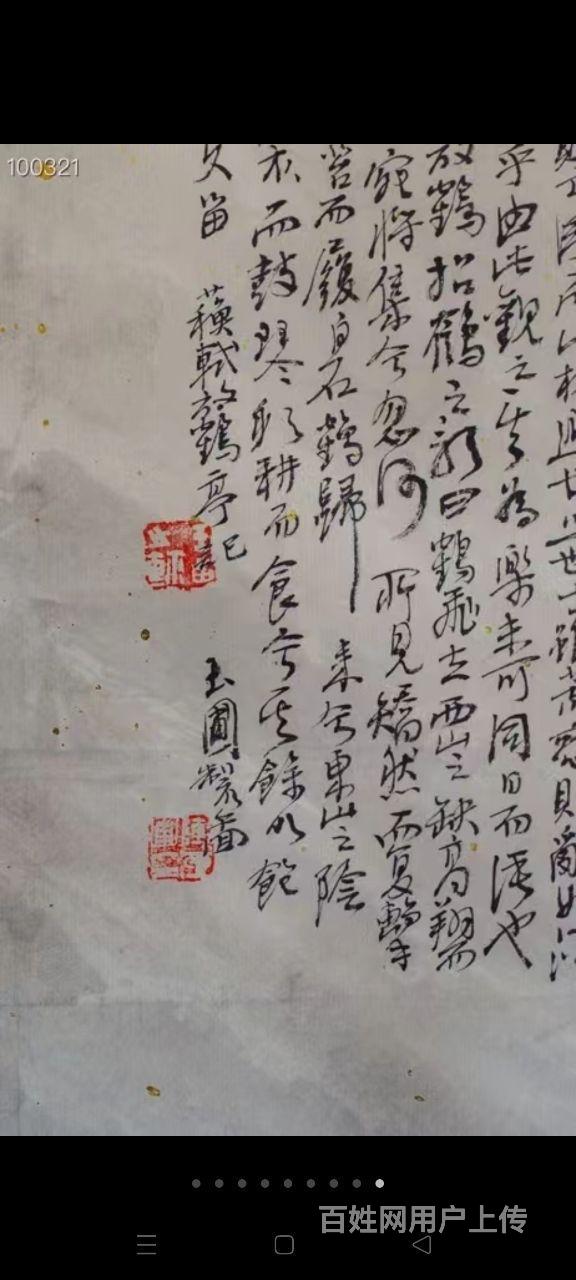 100321
林遁世之士雖荒惑
乎由此觀之其為樂未可同日而語也
放鶴招鶴之歌曰鶴飛去西山之缺高翔而
宛將集兮忽何所見矯然而復擊
苔而履白石鶴歸來兮東山之陰
衣而鼓琴躬耕而食兮其餘以飽
久留 蘇軾放鶴亭記 玉圃製
百姓网用户上传